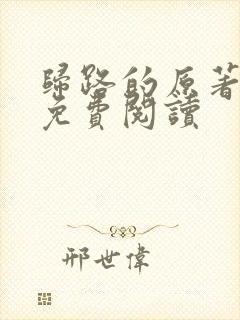 歸路的原著
免費閱讀
邢世偉